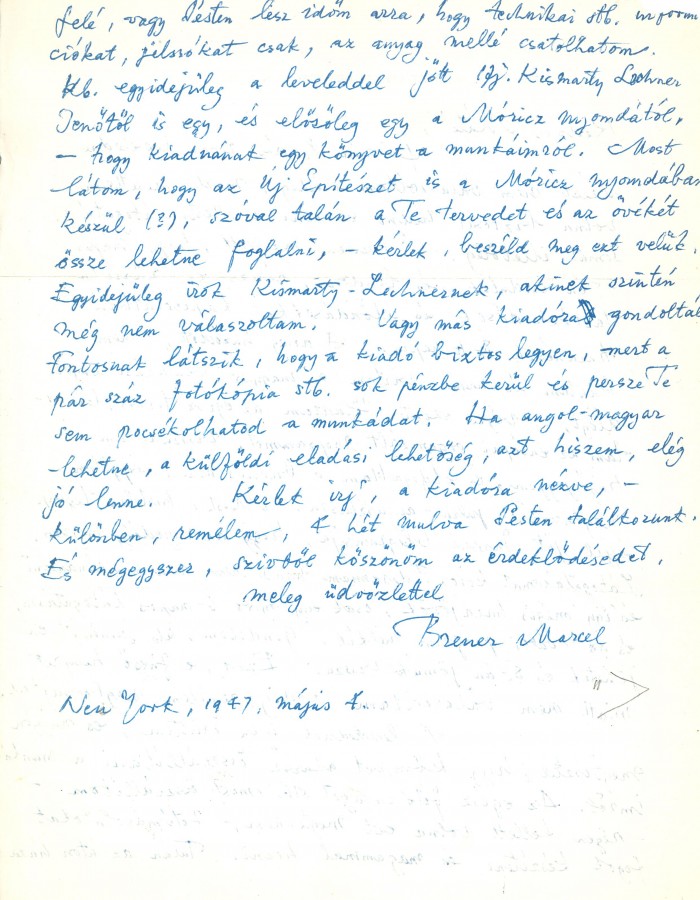 felé, vagy Pesten lesz időm arra, hogy technikai stb. inform
ciókat, jelssókat csak, az anyag mellé csatolhatom.
Kb. egyidejüleg a leveleddel jött ifj. Kismarty Lechner
Jenőtől is egy, és előzőleg egy a Móricz nyomdától,
– hogy kiadnának egy könyvet a munkáimról. Most
látom, hogy az Uj Épitészet is a Móricz nyomdában
készül (?), szóval talán a Te tervedet és az övékét
össze lehetne foglalni, – kérlek, beszéld meg ezt velük.
Egyidejüleg irok Kismarty-Lechnernek, akinek szintén
még nem válaszoltam. Vagy más kiadóra gondoltál
Fontosnak látszik, hogy a kiadó biztos legyen, mert a
pár száz fotókópia stb. sok pénzbe kerül és persze Te
sem pocsékolhatod a munkádat. Ha angol-magyar
lehetne, a külföldi eladási lehetőség, azt hiszem, elég
jó lenne. Kérlek irj, a kiadóra nézve, –
különben, remélem, 4 hét mulva Pesten találkozunk.
És mégegyszer, szivből köszönöm az érdeklődésedet,
meleg üdvözlettel
Breuer Marcel
New York, 1947, május 4.